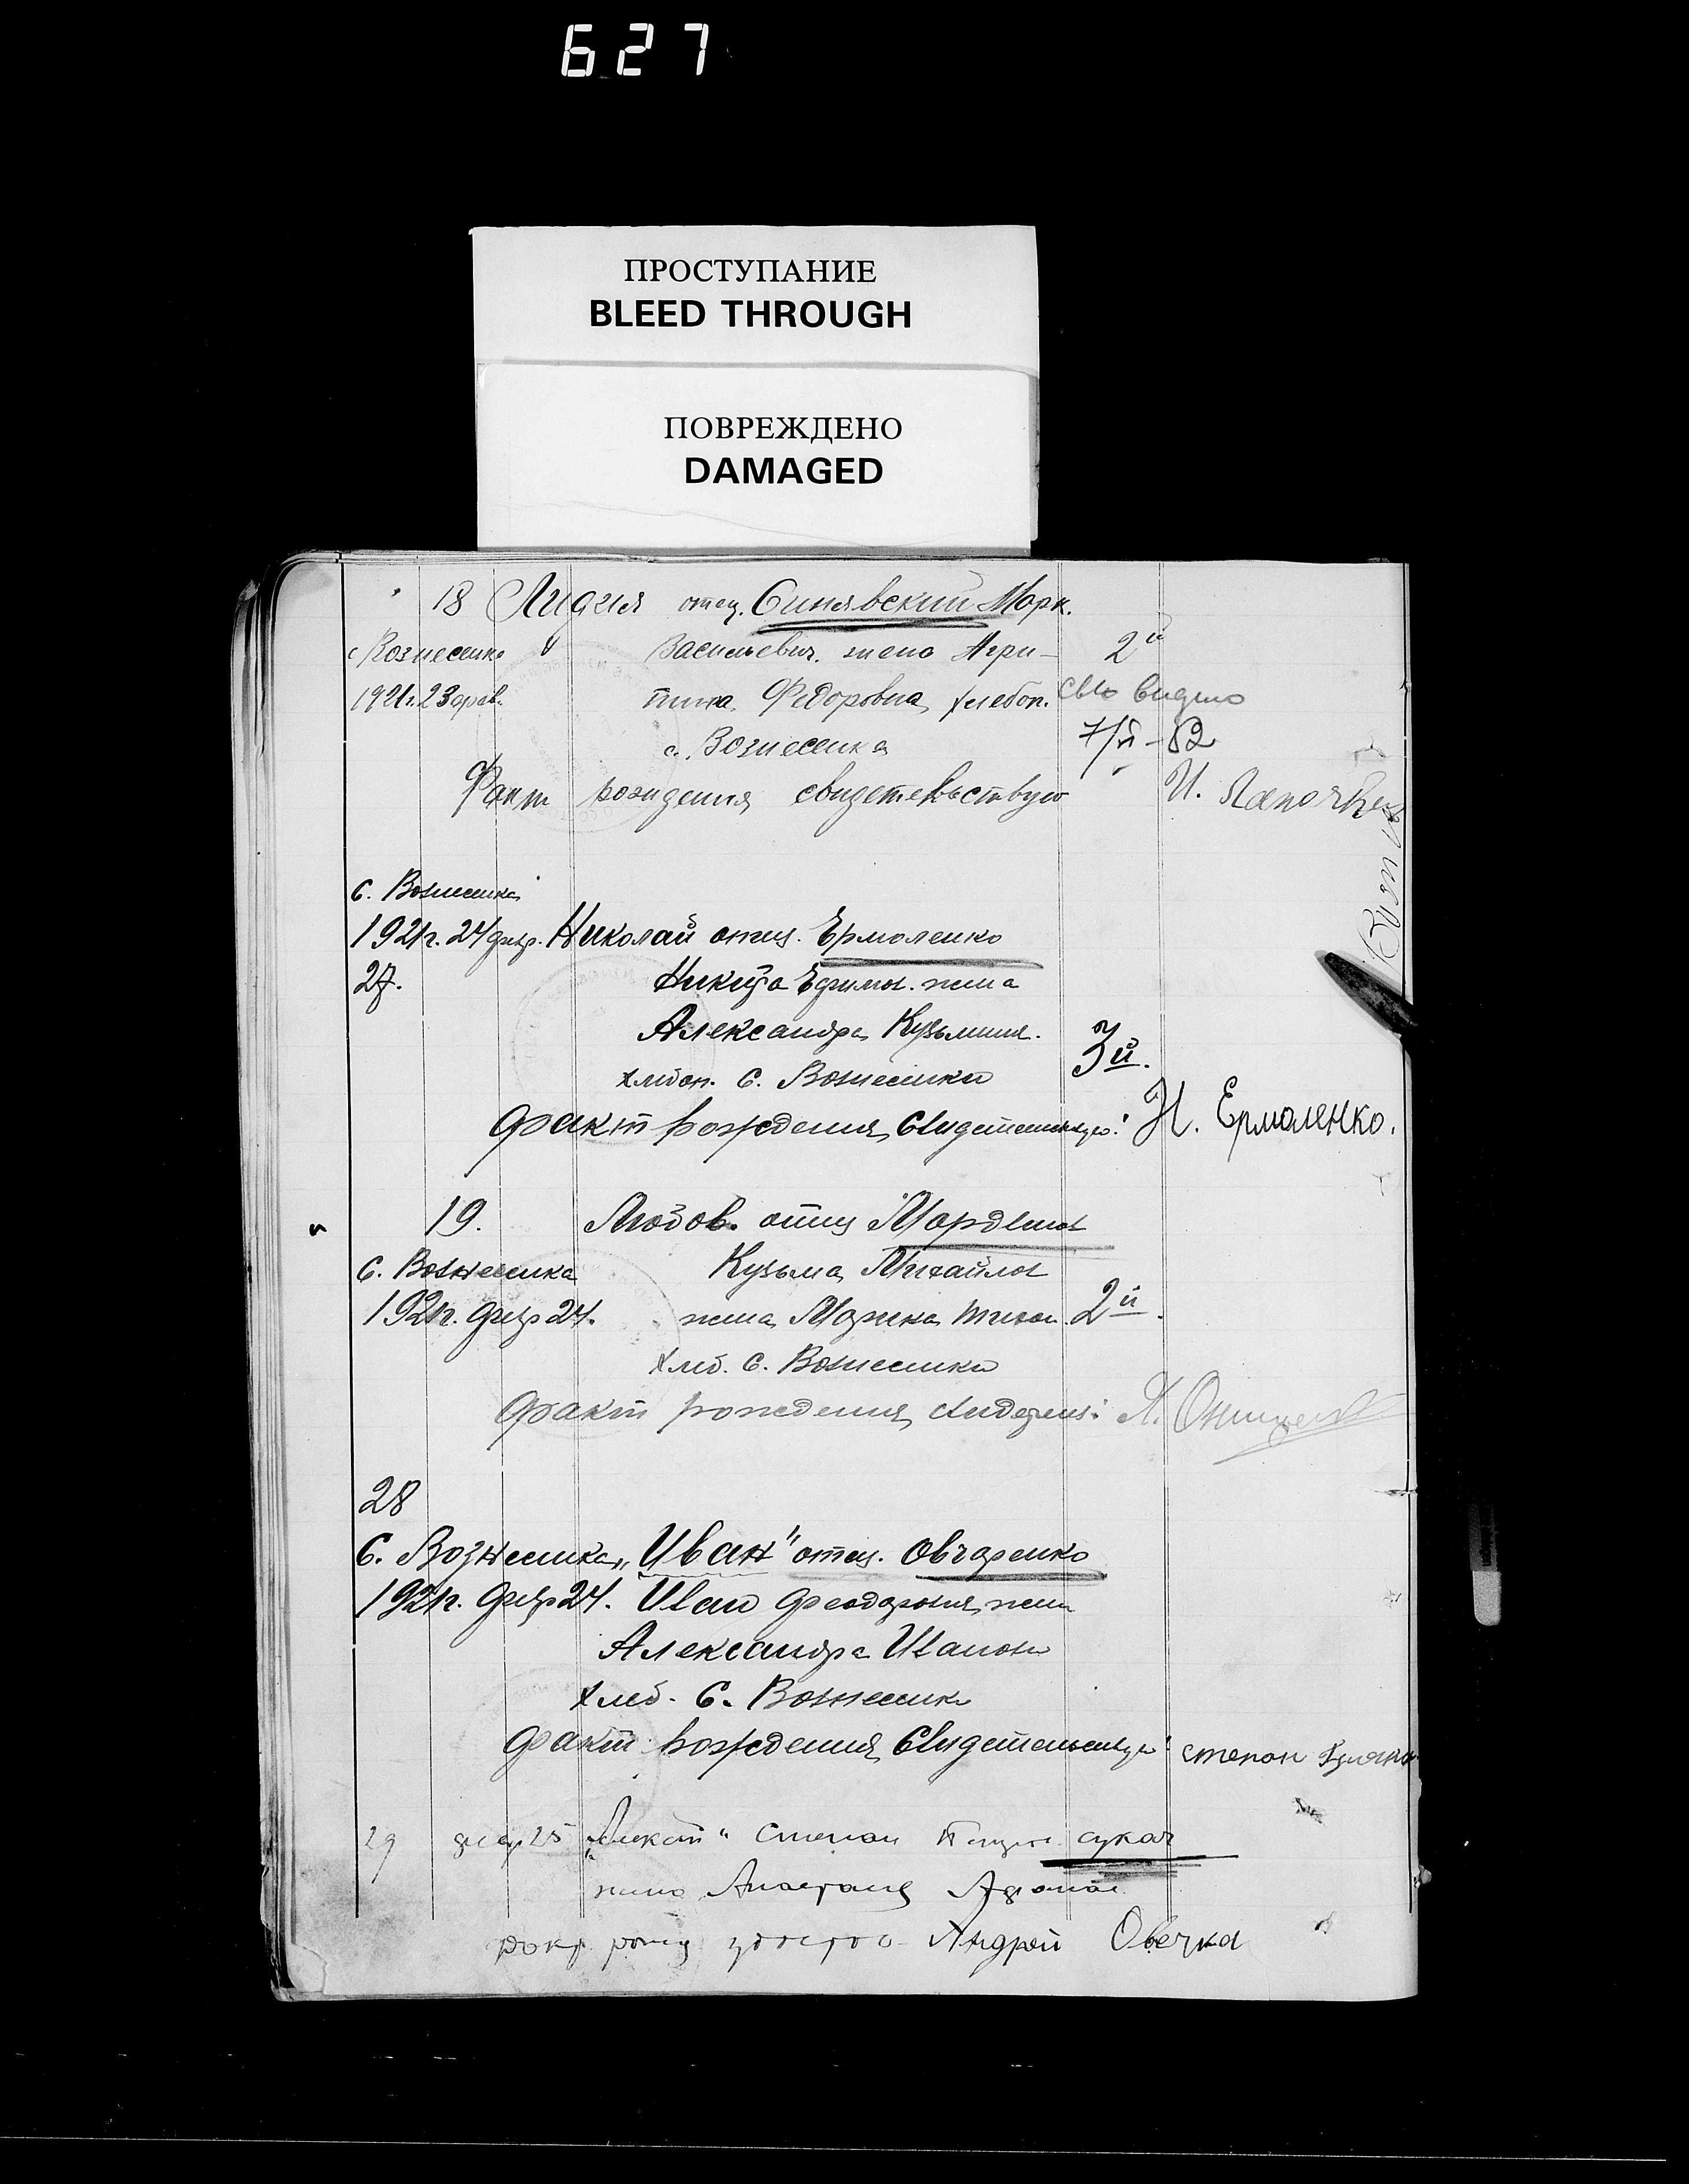 627
ПРОСТУПАНИЕ
BLEED THROUGH
ПОВРЕЖДЕНО
DAMAGED
18 Лидия отец. Синявский Марк.
с Вознесенка Васильевич. жена Агри- 2й
1921г. 23 фев. пина Федоровна, хлебоп. св-во выдано
с. Вознесенка
Факт рождения свидетельствую И.
с. Вознесенка
1921г. 24 февр. Николай отец. Ермоленко
27. Никита Ефимов. жена
Александра Кузьмин.
хлебоп. С. Вознесенки 3й.
факт рождения свидетельствую: Н. Ермоленко.
19. Любов. отец Марденов
С. Вознесенка Кузьма Михайлов
1921г. февр 24. жена Марика Тихон. 2й.
хлеб. С. Вознесенки
факт рождения свидетел:
28
С. Вознесенка „Иван" отец. Овчаренко
1921г. февр 24. Иван Феодоров, жена
Александра Иванов
хлеб. С. Вознесенки
факт рождения свидетельствую: степан
29 февр 25 Степан сукач
жена Анастасия
Андрей Овечка